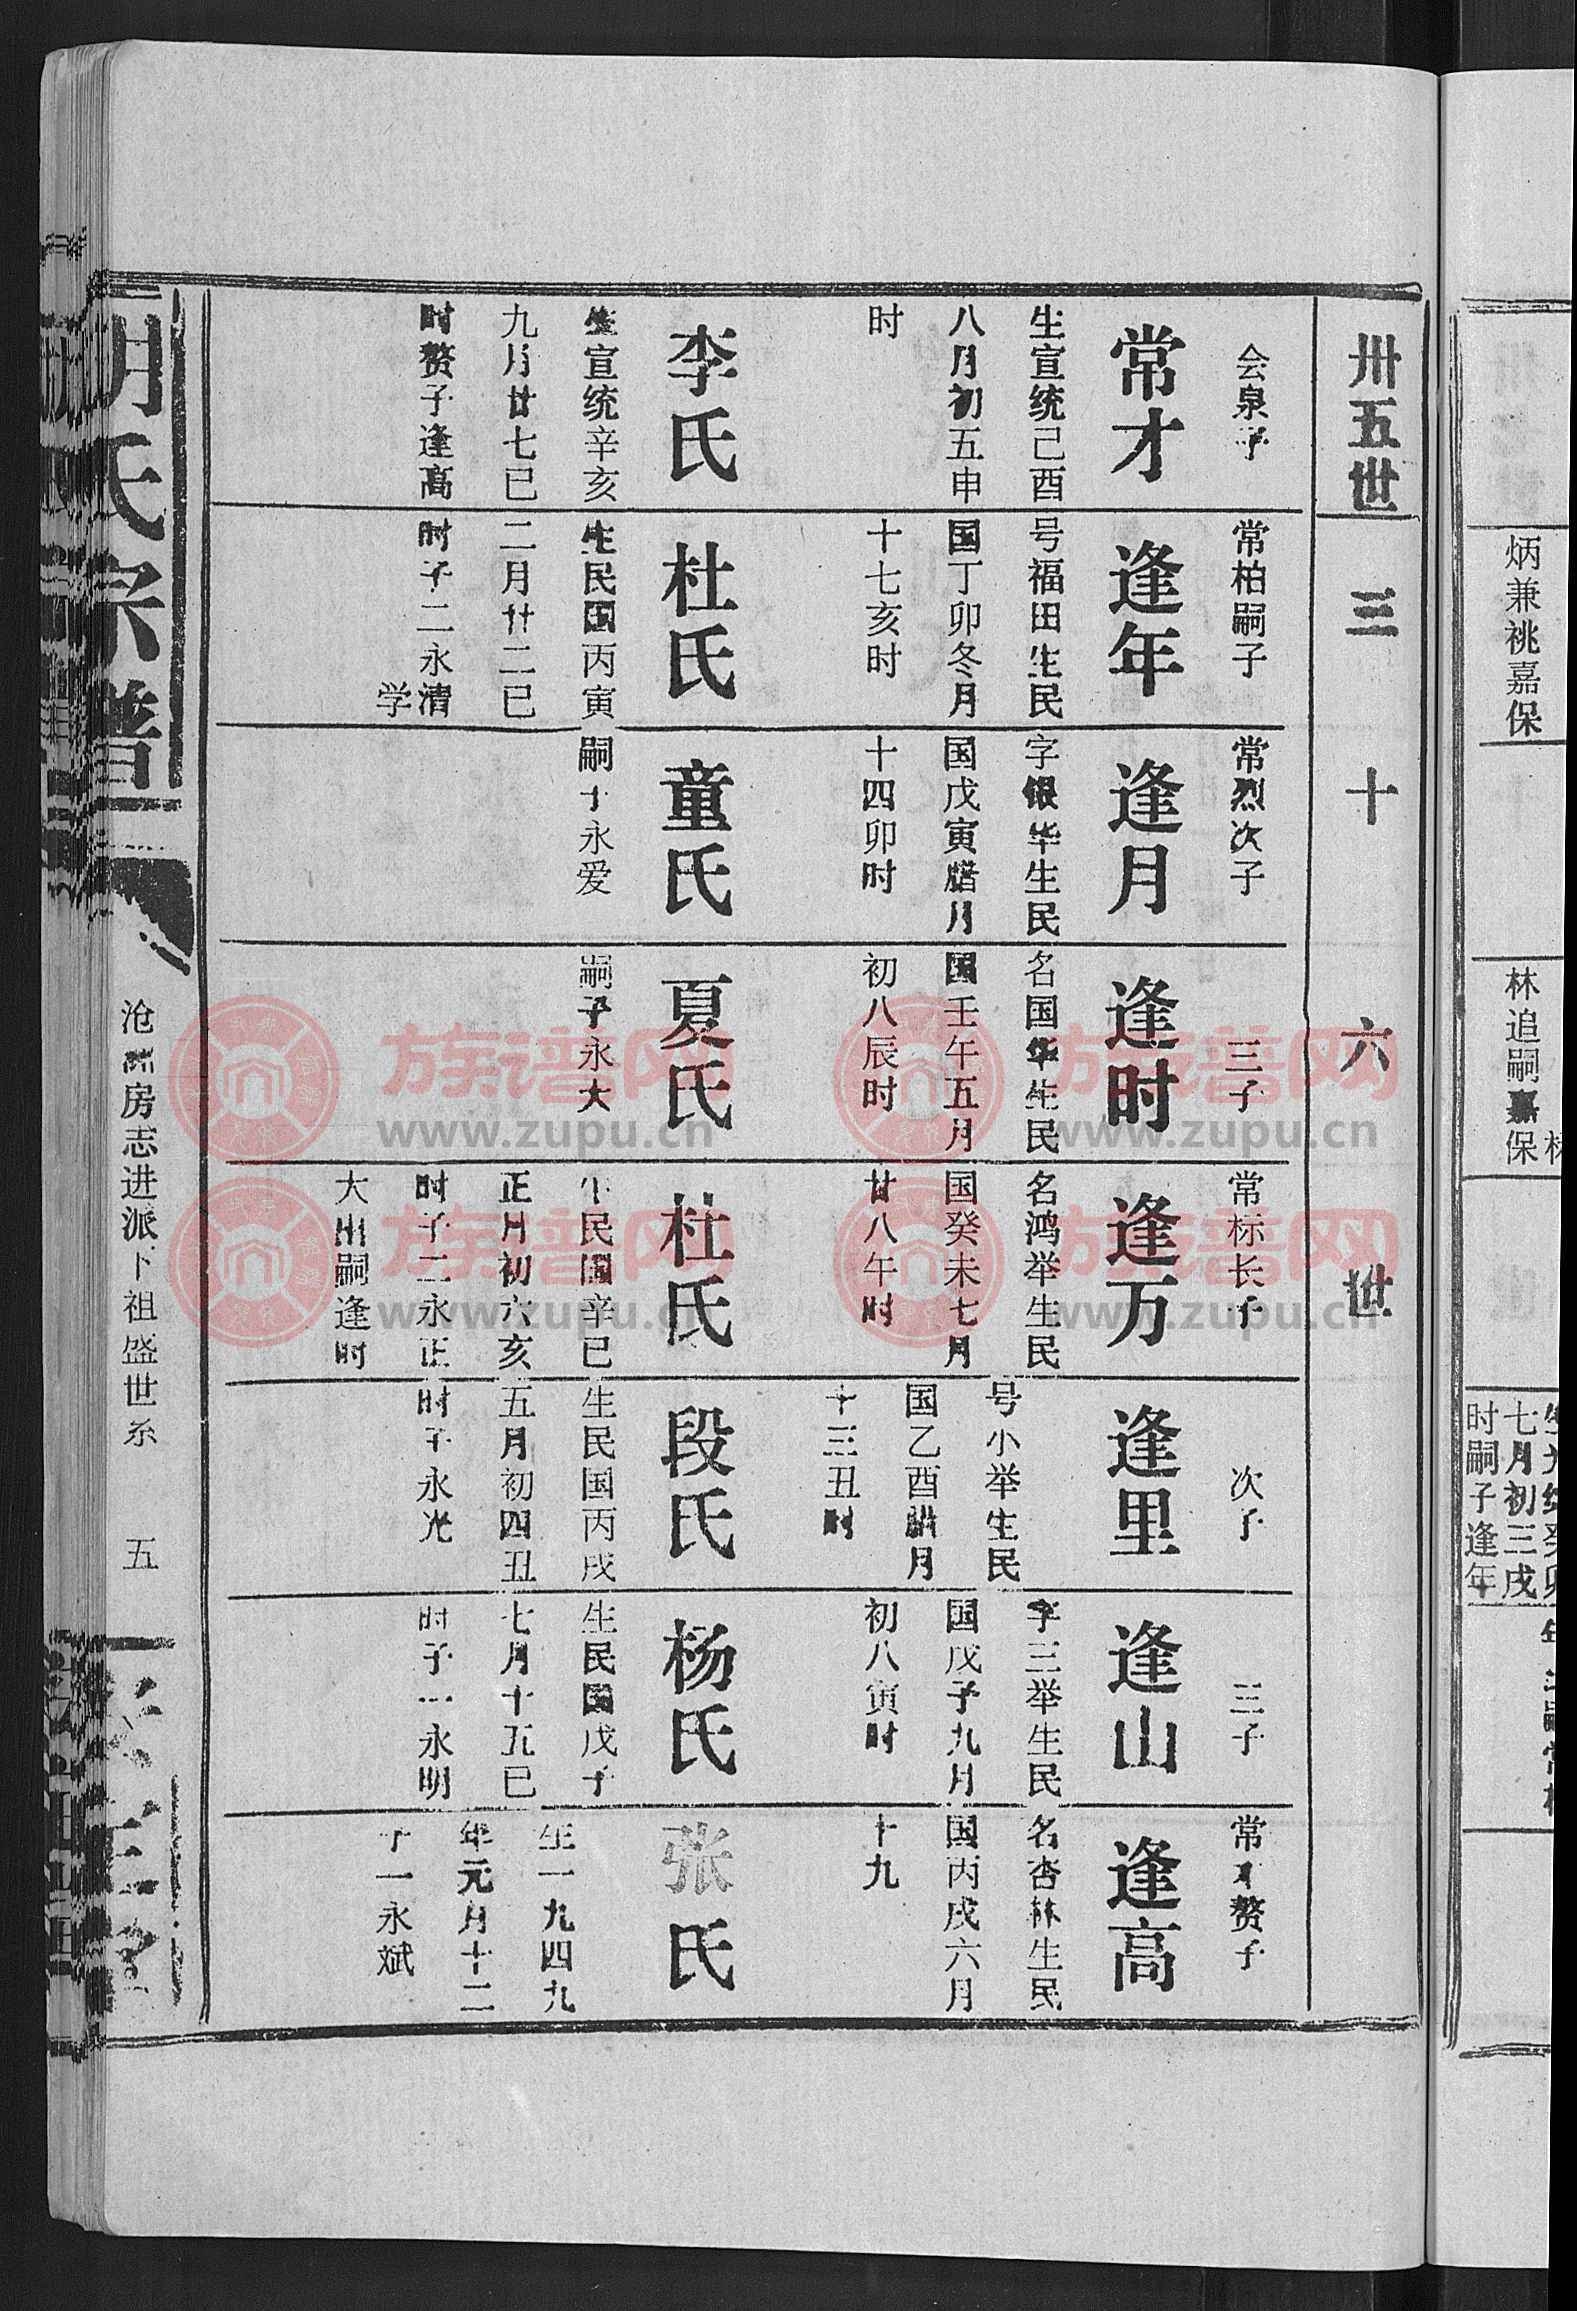 卅五世
三十六世
会泉子
常才
生宣统己酉
八月初五申
时
李氏
生宣统辛亥
九月廿七巳
时赘子逢高
常柏嗣子
逢年
号福田生民
国丁卯冬月
十七亥时
杜氏
生民国丙寅
二月廿二巳
时子二永清
学
常烈次子
逢月
字银华生民
国戊寅腊月
十四卯时
童氏
嗣子永爱
三子
逢时
名国华生民
国壬午五月
初八辰时
夏氏
嗣子永大
常标长子
逢万
名鸿举生民
国癸未七月
廿八午时
杜氏
生民国辛巳
正月初六亥
时子二永正
大出嗣逢时
次子
逢里
号小举生民
国乙酉腊月
十三丑时
段氏
生民国丙戌
五月初四丑
时子永光
三子
逢山
字三举生民
国戊子九月
初八寅时
杨氏
生民国戊子
七月十五巳
时子一永明
常才赘子
逢高
名杏林生民
国丙戌六月
十九
张氏
生一九四九
年元月十二
子一永斌
胡氏宗谱
沧 房志进派下祖盛世系
五
炳兼祧嘉保
林追嗣嘉保
七月初三戌
时嗣子逢年
族谱网
www.zupu.cn
族谱网
www.zupu.cn
族谱网
www.zupu.cn
族谱网
www.zupu.cn